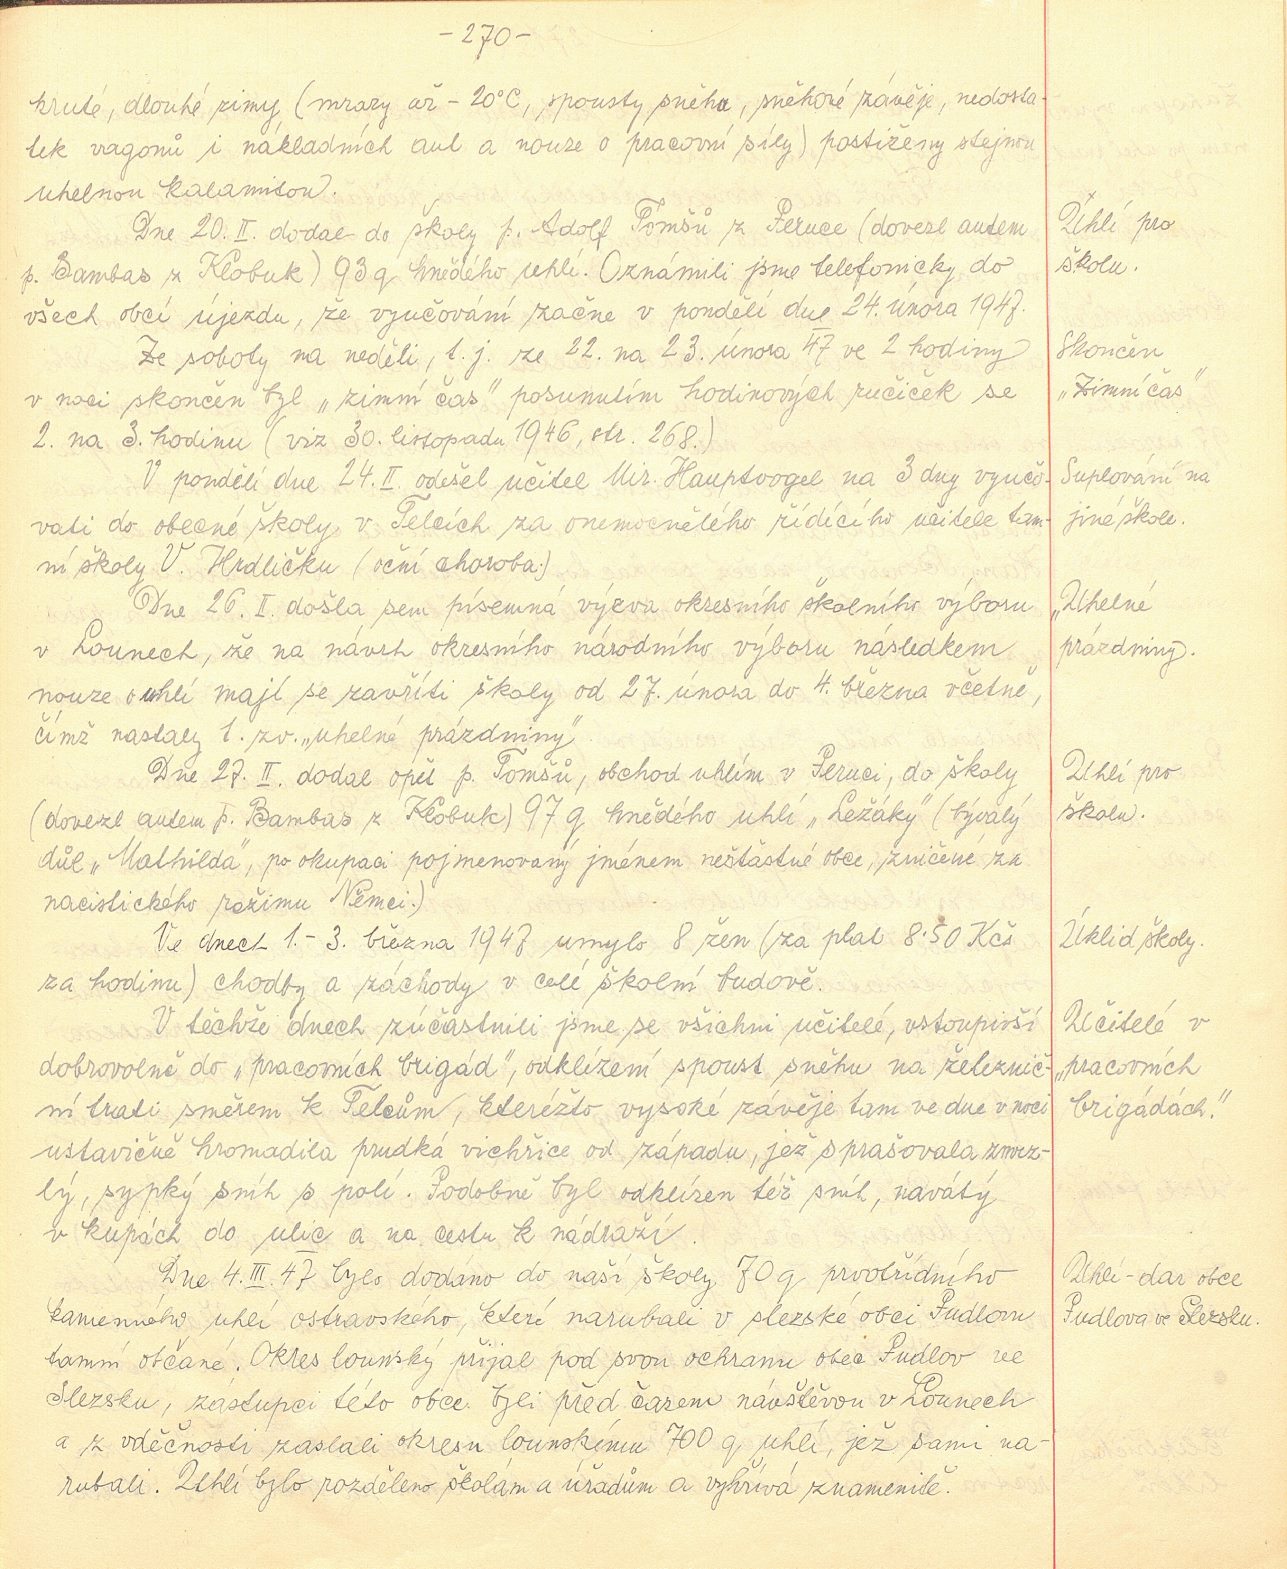 - 270 -
kruté, dlouhé zimy (mrazy až - 20°C, spousty sněhu, sněhové závěje, nedosta-
tek vagonů i nákladních aut a nouze o pracovní síly) postiženy stejnou
uhelnou kalamitou.
Dne 20. II. dodal do školy p. Adolf Tomšů z Peruce (dovezl autem
Uhlí pro
p. Bambas z Klobuk) 93 q hnědého uhlí. Oznámili jsme telefonicky do
školu.
všech obcí újezdu, že vyučování začne v pondělí dne 24. února 1947.
Ze soboty na neděli, t. j. ze 22. na 23. února 47 ve 2 hodiny
Skončen
v noci skončen byl „zimní čas" posunutím hodinových ručiček se
„Zimní čas"
2. na 3. hodinu (viz 30. listopadu 1946, str. 268.)
V pondělí dne 24. II. odešel učitel Mir. Hauptvogel na 3 dny vyučo-
Suplování na
vati do obecné školy v Telcích za onemocnělého řídícího učitele tam-
jiné škole.
ní školy V. Hrdličku (oční choroba.)
Dne 26. I. došla sem písemná výzva okresního školního výboru
„Uhelné
v Lounech, že na návrh okresního národního výboru následkem
prázdniny.
nouze o uhlí mají se zavříti školy od 27. února do 4. března včetně,
čímž nastaly t. zv. „uhelné prázdniny"
Dne 27. II. dodal opět p. Tomšů, obchod uhlím v Peruci, do školy
Uhlí pro
(dovezl autem p. Bambas z Klobuk) 97 q hnědého uhlí „Ležáky" (bývalý
školu.
důl „Mathilda", po okupaci pojmenovaný jménem nešťastné obce, zničené za
nacistického režimu Němci.)
Ve dnech 1. - 3. března 1947 umylo 8 žen (za plat 8·50 Kčs
Úklid školy.
za hodinu) chodby a záchody v celé školní budově.
V těchže dnech zúčastnili jsme se všichni učitelé, vstoupivší
Učitelé v
dobrovolně do „pracovních brigád", odklízení spoust sněhu na železnič-
„pracovních
ní trati směrem k Telcům, kterézto vysoké závěje tam ve dne v noci
brigádách."
ustavičně hromadila prudká vichřice od západu, jež sprašovala zmrz-
lý, sypký sníh s polí. Podobně byl odklizen též sníh, navátý
v kupách do ulic a na cestu k nádraží.
Dne 4. III. 47 bylo dodáno do naší školy 70 q prvotřídního
Uhlí - dar obce
kamenného uhlí ostravského, které narubali v slezské obci Pudlovu
Pudlova ve Slezsku.
tamní občané. Okres lounský přijal pod svou ochranu obec Pudlov ve
Slezsku, zástupci této obce byli před časem návštěvou v Lounech
a z vděčnosti zaslali okresu lounskému 700 q uhlí, jež sami na-
rubali. Uhlí bylo rozděleno školám a úřadům a vyhřívá znamenitě.